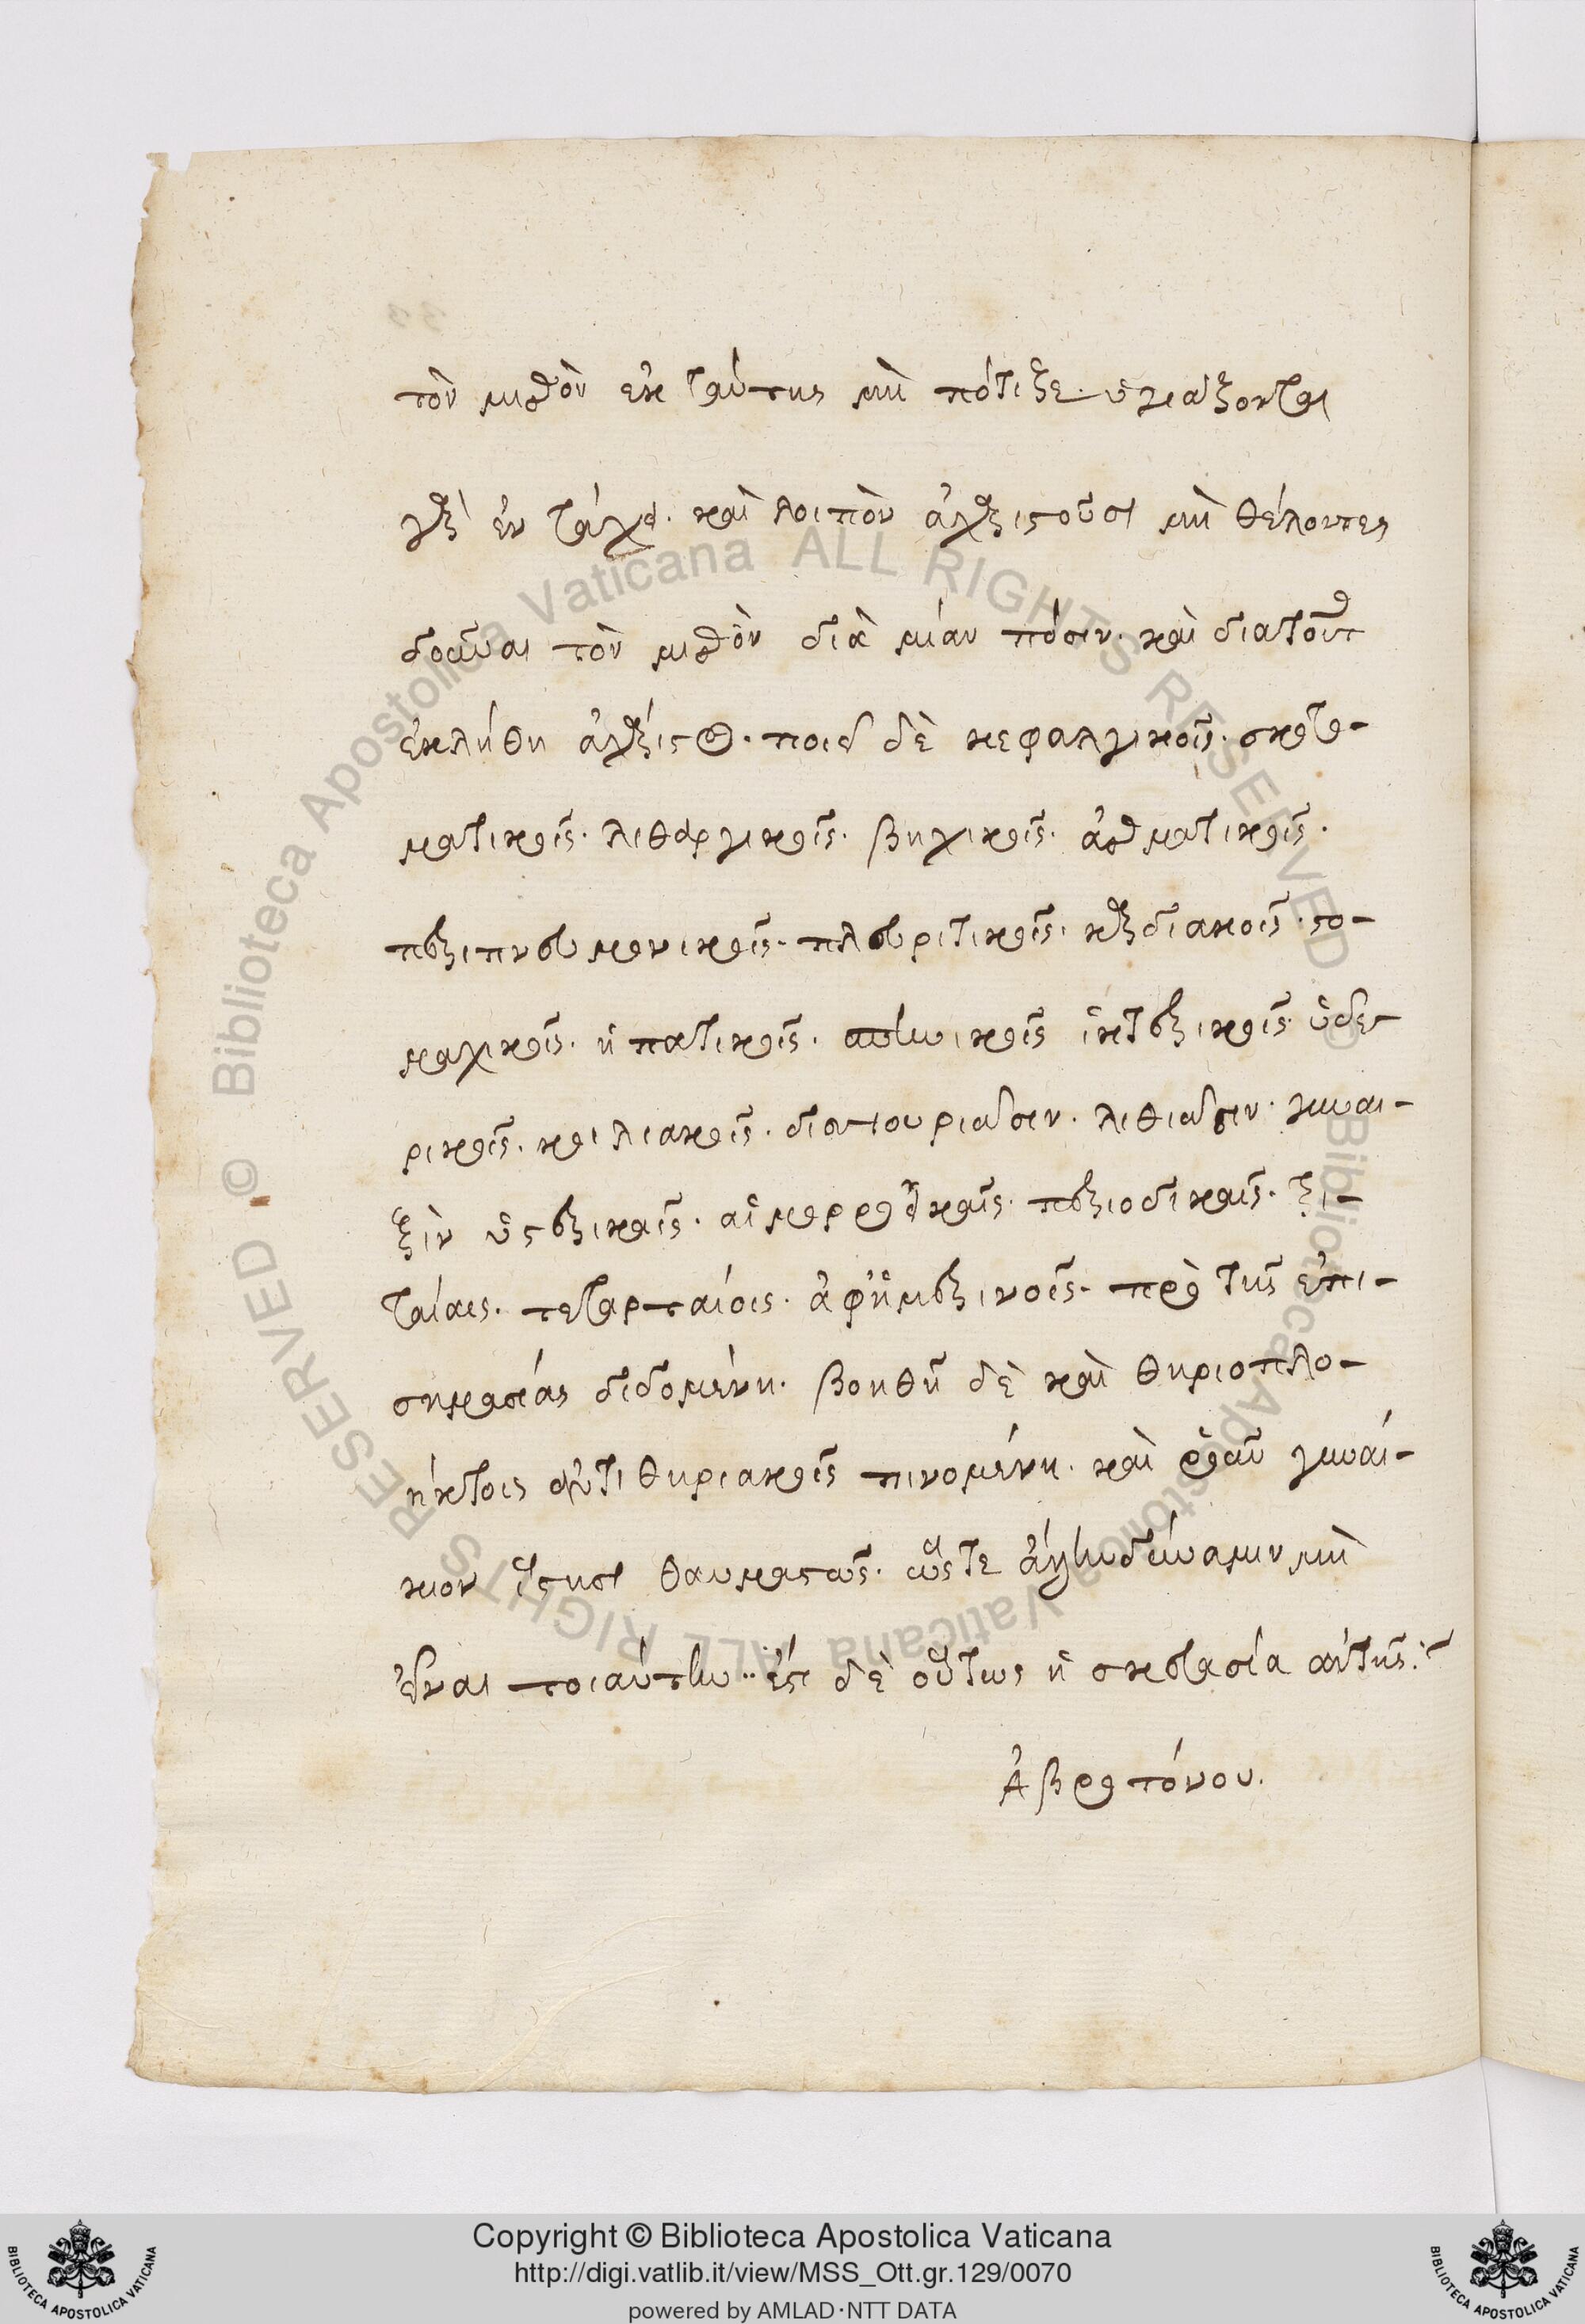 τὸν μισθὸν ἐκ ταύτης μὴ πότιζε· ὑγιάζονται
γὰρ ἐν τάχει· καὶ λοιπὸν ἀχαριστοῦσι μὴ θέλοντες
δοῦναι τὸν μισθὸν διὰ μίαν πόσιν· καὶ διατοῦτο
ἐκλήθη ἀχάριστος· ποιεῖ δὲ κεφαλγικοῖς· σκοτω-
ματικοῖς· λιθαργικοῖς· βηχικοῖς· ἀσθματικοῖς·
περιπνευμονικοῖς· πλευριτικοῖς· καρδιακοῖς· στο-
μαχικοῖς· ἡπατικοῖς· σπληνικοῖς ἰκτερικοῖς· ὑδε-
ρικοῖς· κοιλιακοῖς· δυσουριῶσιν· λιθιῶσιν· γυναι-
ξὶν ὑστερικαῖς· αἱμορροϊκαῖς· περιοδικαῖς· τρι-
ταίαις· τεταρταίοις· ἀφημερινοῖς· πρὸ τῆς ἐπι-
σημασίας διδομένη· βοηθῆ δὲ καὶ θηριοπλο-
ήκτοις ἀντιθηριακοῖς πινομένη· καὶ ῥοῦν γυναί-
κιον ἵστησι θαυμαστῶς· ὥστε ἄλλην δύναμιν μὴ
εἶναι τοιαύτην·· ἔστι δὲ οὕτως ἡ σκευασία αὐτῆς:~
Ἀβροτόνου.
Copyright © Biblioteca Apostolica Vaticana
http://digi.vatlib.it/view/MSS_Ott.gr.129/0070
powered by AMLAD·NTT DATA
© Biblioteca Apostolica Vaticana ALL RIGHTS RESERVED
© Biblioteca Apostolica Vaticana ALL RIGHTS RESERVED
BIBLIOTECA APOSTOLICA VATICANA
BIBLIOTECA APOSTOLICA VATICANA